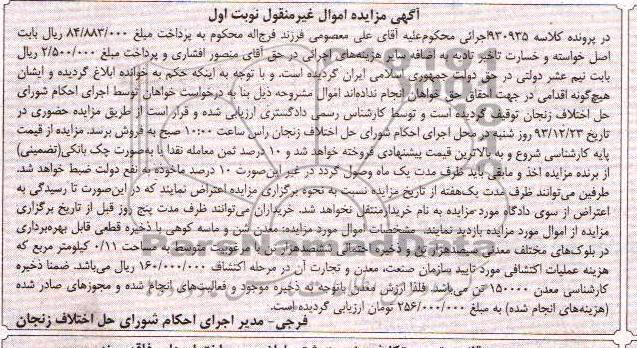 آگهی مزایده اموال غیرمنقول نوبت اول
در پرونده کلاسه ۹۳۰۹۳۵اجرائی محکوم‌علیه آقای علی معصومی فرزند فرج‌اله محکوم به پرداخت مبلغ ۸۴/۸۸۳/۰۰۰ ریال بابت
اصل خواسته و خسارت تأخیر تادیه به اضافه سایر هزینه‌های اجرائی در حق آقای منصور افشاری و پرداخت مبلغ ۲/۵۰۰/۰۰۰ ریال
بابت نیم عشر دولتی در حق دولت جمهوری اسلامی ایران گردیده است. و با توجه به اینکه حکم به خوانده ابلاغ گردیده و ایشان
هیچ‌گونه اقدامی در جهت احقاق حق خواهان انجام نداده‌اند اموال مشروحه ذیل بنا به درخواست خواهان توسط اجرای احکام شورای
حل اختلاف زنجان توقیف گردیده است و توسط کارشناس رسمی دادگستری ارزیابی شده و قرار است از طریق مزایده حضوری در
تاریخ ۹۳/۱۲/۲۳ روز شنبه در محل اجرای احکام شورای حل اختلاف زنجان راس ساعت ۱۰:۰۰ صبح به فروش برسد. مزایده از قیمت
پایه کارشناسی شروع و به بالاترین قیمت پیشنهادی فروخته خواهد شد و ۱۰ درصد ثمن معامله نقدا یا به‌صورت چک بانکی(تضمینی)
از برنده مزایده اخذ و مابقی باید ظرف مدت یک ماه وصول گردد در غیر این‌صورت ۱۰ درصد ماخوذه به نفع دولت ضبط خواهد شد.
طرفین می‌توانند ظرف مدت یک‌هفته از تاریخ مزایده نسبت به نحوه برگزاری مزایده اعتراض نمایند که در این‌صورت تا رسیدگی به
اعتراض از سوی دادگاه مورد مزایده به نام خریدارمنتقل نخواهد شد. خریداران می‌توانند ظرف مدت پنج روز قبل از تاریخ برگزاری
مزایده از اموال مورد مزایده بازدید نمایند. مشخصات اموال مورد مزایده: معدن شن و ماسه کوهی با ذخیره قطعی قابل بهره‌برداری
در بلوک‌های مختلف معدنی سیصدهزار تن و ذخیره احتمالی ششصدهزار تن با مرغوبیت متوسط به مساحت ۰/۱۱ کیلومتر مربع که
هزینه عملیات اکتشافی مورد تایید سازمان صنعت، معدن و تجارت آن در مرحله اکتشاف ۱۶۰/۰۰۰/۰۰۰ ریال می‌باشد. ضمنا ذخیره
کارشناسی معدن ۱۵۰۰۰۰ تن می‌باشد. فلذا ارزش معدن باتوجه به ذخیره موجود و فعالیت‌های انجام شده و مجوزهای صادر شده
(هزینه‌های انجام شده) به مبلغ ۲۵۶/۰۰۰/۰۰۰ تومان ارزیابی گردیده است.
فرجی- مدیر اجرای احکام شورای حل اختلاف زنجان